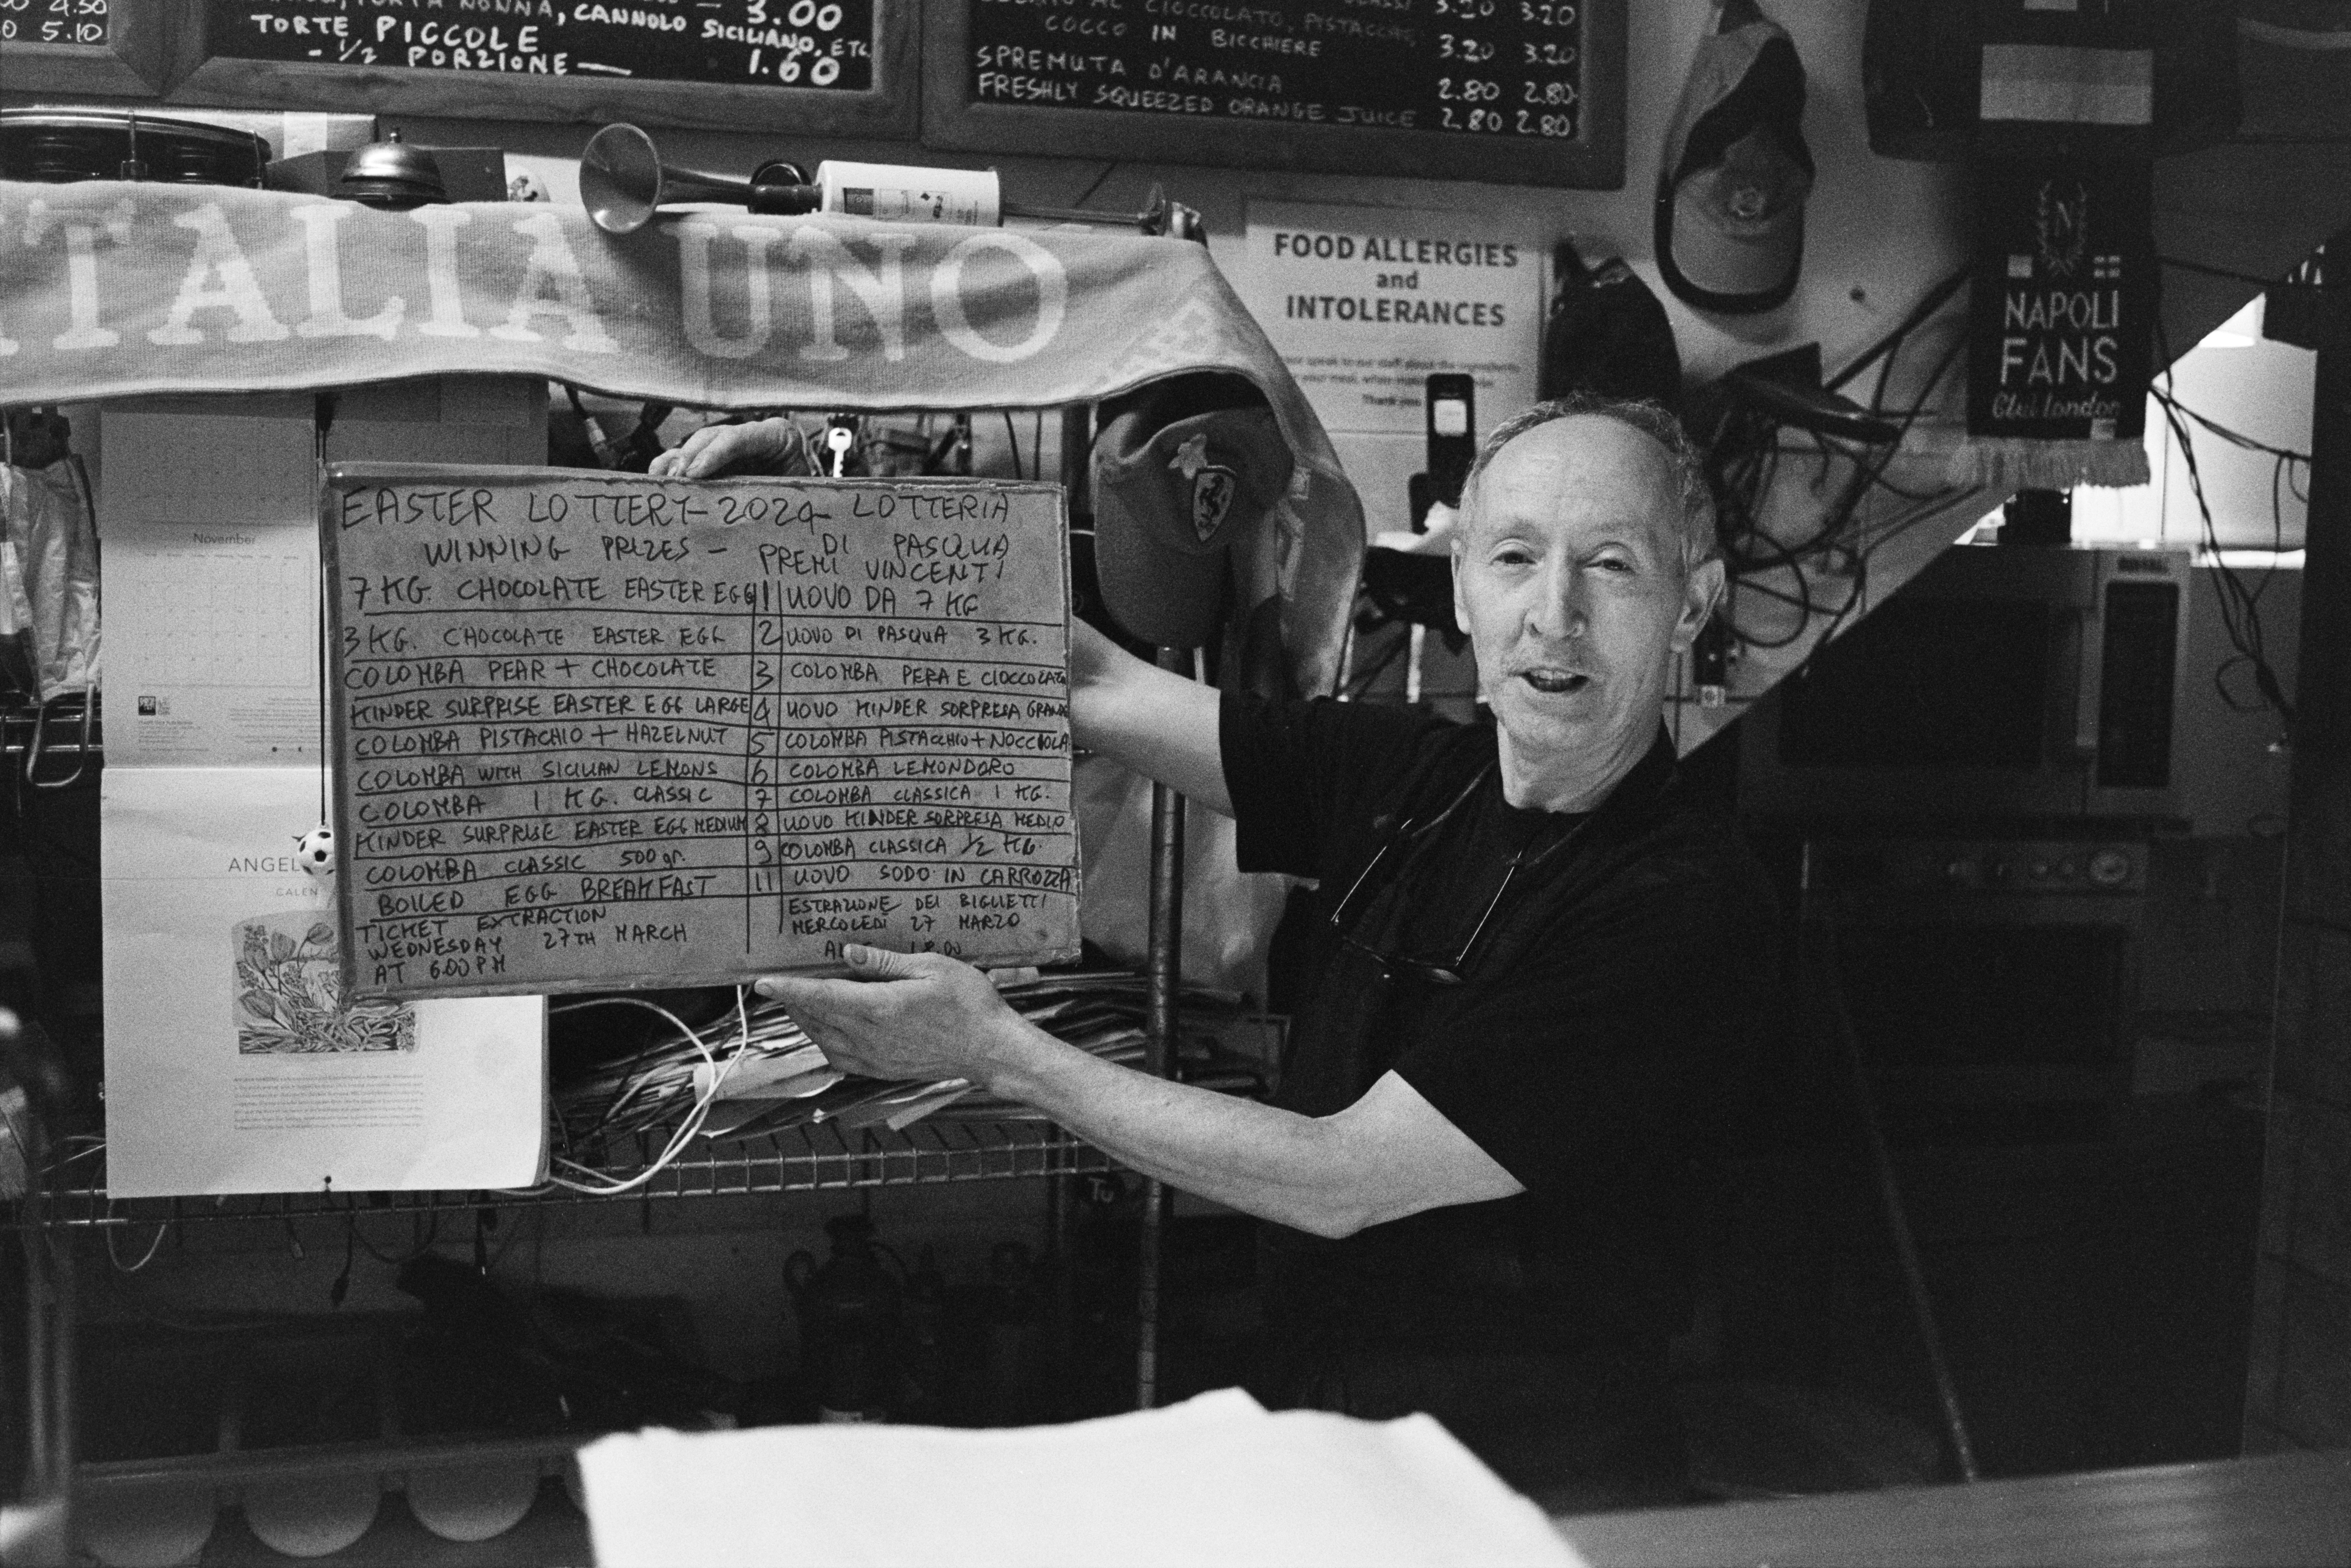 4.50
5.10
TORTA NONNA, CANNOLO SICILIANO, ETC
3.00
TORTE PICCOLE
- 1/2 PORZIONE —
1.60
AL CIOCCOLATO, PISTACCHIO,
3.20 3.20
COCCO IN BICCHIERE
3.20 3.20
SPREMUTA D'ARANCIA
2.80 2.80
FRESHLY SQUEEZED ORANGE JUICE
2.80 2.80
ITALIA UNO
FOOD ALLERGIES
and
INTOLERANCES
Thank you
N
NAPOLI
FANS
Club London
November
EASTER LOTTERY - 2024 - LOTTERIA
WINNING PRIZES - DI PASQUA
PREMI VINCENTI
7 KG. CHOCOLATE EASTER EGG 1 UOVO DA 7 KG
3 KG. CHOCOLATE EASTER EGG 2 UOVO DI PASQUA 3 KG.
COLOMBA PEAR + CHOCOLATE 3 COLOMBA PERA E CIOCCOLATO
KINDER SURPRISE EASTER EGG LARGE 4 UOVO KINDER SORPRESA GRANDE
COLOMBA PISTACHIO + HAZELNUT 5 COLOMBA PISTACCHIO + NOCCIOLA
COLOMBA WITH SICILIAN LEMONS 6 COLOMBA LEMONDORO
COLOMBA 1 KG. CLASSIC 7 COLOMBA CLASSICA 1 KG.
KINDER SURPRISE EASTER EGG MEDIUM 8 UOVO KINDER SORPRESA MEDIO
COLOMBA CLASSIC 500 gr. 9 COLOMBA CLASSICA 1/2 KG.
BOILED EGG BREAKFAST 11 UOVO SODO IN CARROZZA
TICKET EXTRACTION
WEDNESDAY 27TH MARCH
AT 6.00 PM
ESTRAZIONE DEI BIGLIETTI
MERCOLEDÌ 27 MARZO
18.00
ANGEL
CALEN
Tu